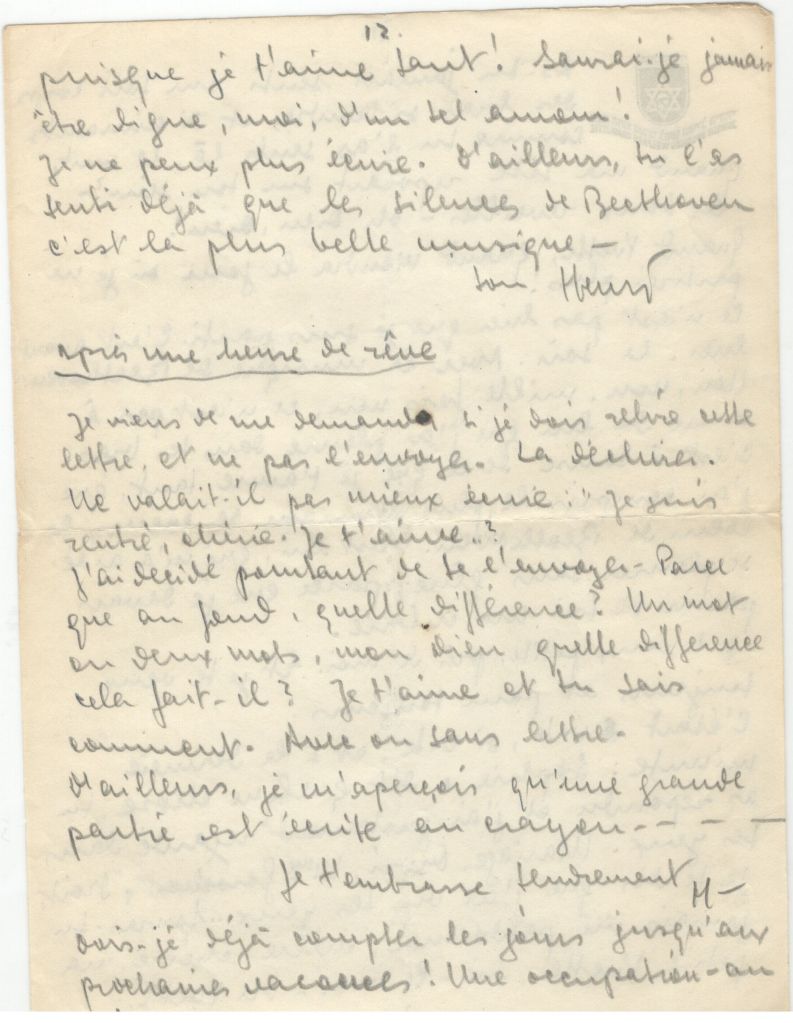 12.
puisque je t'aime tant! Saurai-je jamais
être digne, moi, d'un tel amour!
Je ne peux plus écrire. D'ailleurs, tu l'as
senti déjà que les silences de Beethoven
c'est la plus belle musique —
ton Henri
après une heure de rêve
Je viens de me demander si je dois relire cette
lettre, et ne pas l'envoyer. La déchirer.
Ne valait-il pas mieux écrire: "Je suis
rentré, chérie. Je t'aime."?
J'ai decidé pourtant de te l'envoyer - Parce
que au fond, quelle différence? Un mot
ou deux mots, mon dieu quelle difference
cela fait-il? Je t'aime et tu sais
comment. Avec ou sans lettre.
D'ailleurs, je m'aperçois qu'une grande
partie est écrite au crayon - - - -
Je t'embrasse tendrement
H —
Dois-je déjà compter les jours jusqu'aux
prochaines vacances! Une occupation - au